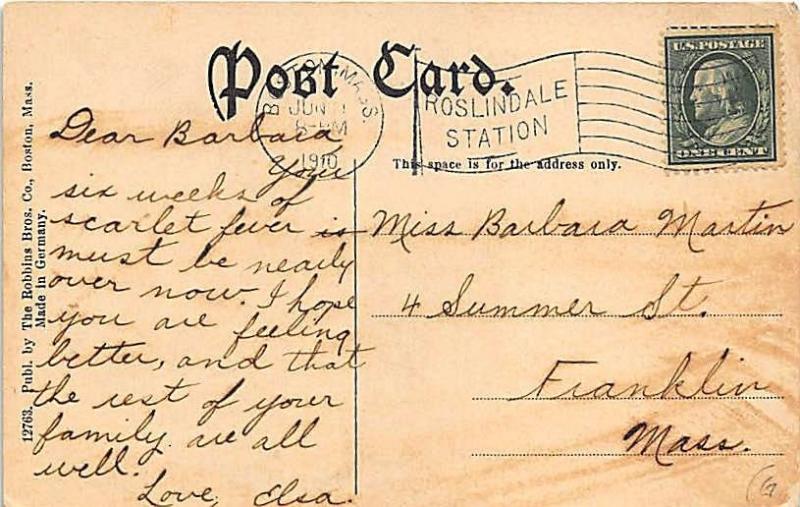 Post Card.
BOSTON, MASS
JUN 1
8-PM
1910
ROSLINDALE
STATION
U.S. POSTAGE
ONE CENT
This space is for the address only.
12763. Publ. by The Robbins Bros. Co., Boston, Mass.
Made in Germany.
Dear Barbara
Your
six weeks of
scarlet fever is
must be nearly
over now. I hope
you are feeling
better, and that
the rest of your
family are all
well.
Love, Elsa.
Miss Barbara Martin
4 Summer St.
Franklin
Mass.